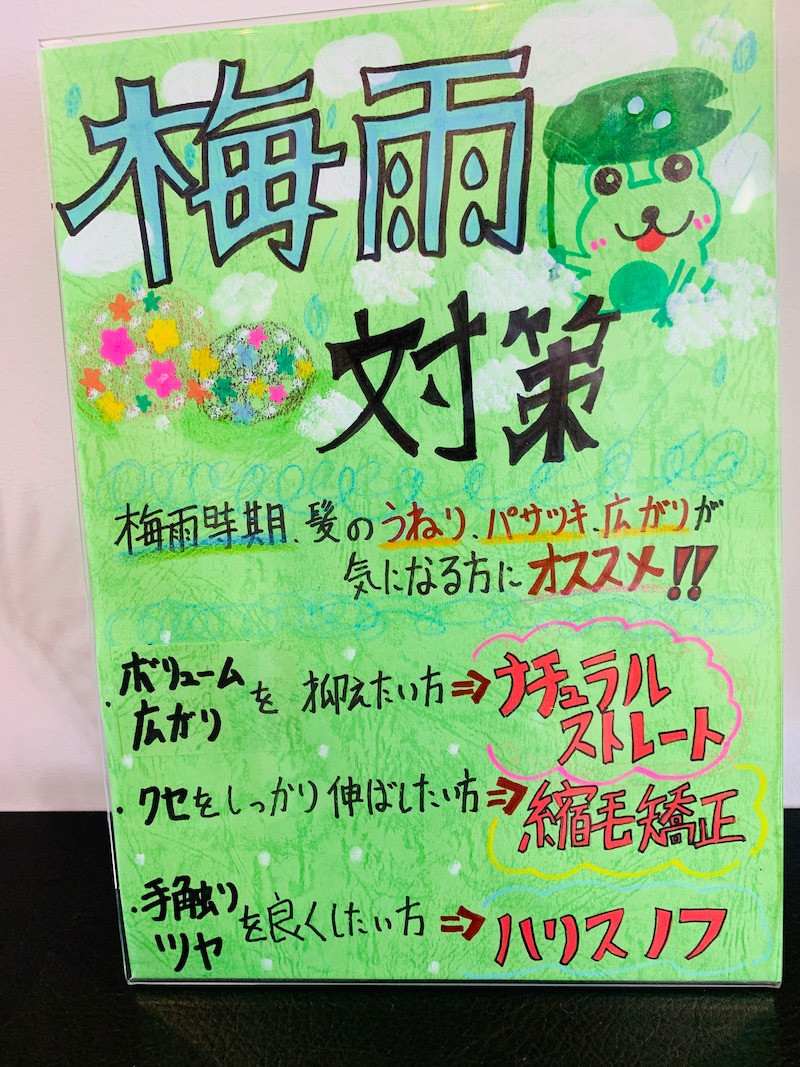 梅雨
対策
梅雨時期、髪のうねり、パサツキ、広がりが
気になる方にオススメ!!
・ボリューム
広がりを抑えたい方⇒ナチュラル
ストレート
・クセをしっかり伸ばしたい方⇒縮毛矯正
・手触り
ツヤを良くしたい方⇒ハリスノフ